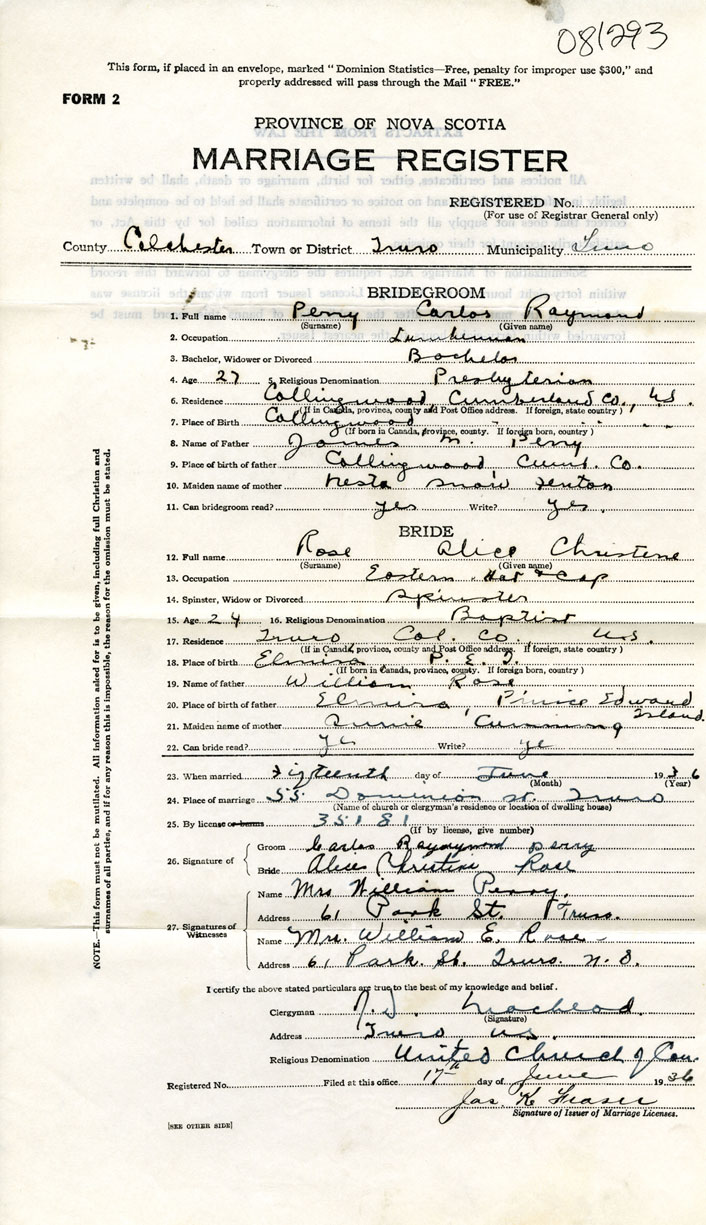 081293
This form, if placed in an envelope, marked "Dominion Statistics—Free, penalty for improper use $300," and
properly addressed will pass through the Mail "FREE."
FORM 2
PROVINCE OF NOVA SCOTIA
MARRIAGE REGISTER
REGISTERED No.
(For use of Registrar General only)
County Colchester Town or District Truro Municipality Truro
BRIDEGROOM
1. Full name Perry Carlos Raymond
(Surname) (Given name)
2. Occupation Lumberman
3. Bachelor, Widower or Divorced Bachelor
4. Age 27 5. Religious Denomination Presbyterian
6. Residence Collingwood, Cumberland Co., N.S.
(If in Canada, province, county and Post Office address. If foreign, state country)
7. Place of Birth Collingwood " " "
(If born in Canada, province, county. If foreign born, country)
8. Name of Father James M. Perry
9. Place of birth of father Collingwood, Cumb. Co.
10. Maiden name of mother Snow
11. Can bridegroom read? yes Write? yes.
BRIDE
12. Full name Rose Alice Christene
(Surname) (Given name)
13. Occupation Eastern Hat & Cap
14. Spinster, Widow or Divorced Spinster
15. Age 24 16. Religious Denomination Baptist
17. Residence Truro Col. Co. N.S.
(If in Canada, province, county and Post Office address. If foreign, state country)
18. Place of birth Elmira P.E.I.
(If born in Canada, province, county. If foreign born, country)
19. Name of father William Rose
20. Place of birth of father Elmira, Prince Edward
Island.
21. Maiden name of mother Annie Cumming
22. Can bride read? yes Write? ye
23. When married day of June 1936
(Month) (Year)
24. Place of marriage 55 Dominion St. Truro
(Name of church or clergyman's residence or location of dwelling house)
25. By license or banns 35181
(If by license, give number)
26. Signature of
Groom Carlos Raymond perry
Bride Alice Christine Rose
27. Signatures of Witnesses
Name Mrs William Perry.
Address 61 Park St. Truro.
Name Mrs. William E. Rose
Address 61 Park. St. Truro. N.S.
I certify the above stated particulars are true to the best of my knowledge and belief.
Clergyman
(Signature)
Address Truro N.S.
Religious Denomination United Church of Can.
Registered No. Filed at this office 17th day of June 1936
Jas. K. Fraser
Signature of Issuer of Marriage Licenses.
[SEE OTHER SIDE]
NOTE.—This form must not be mutilated. All information asked for is to be given, including full Christian and
surnames of all parties, and if for any reason this is impossible, the reason for the omission must be stated.